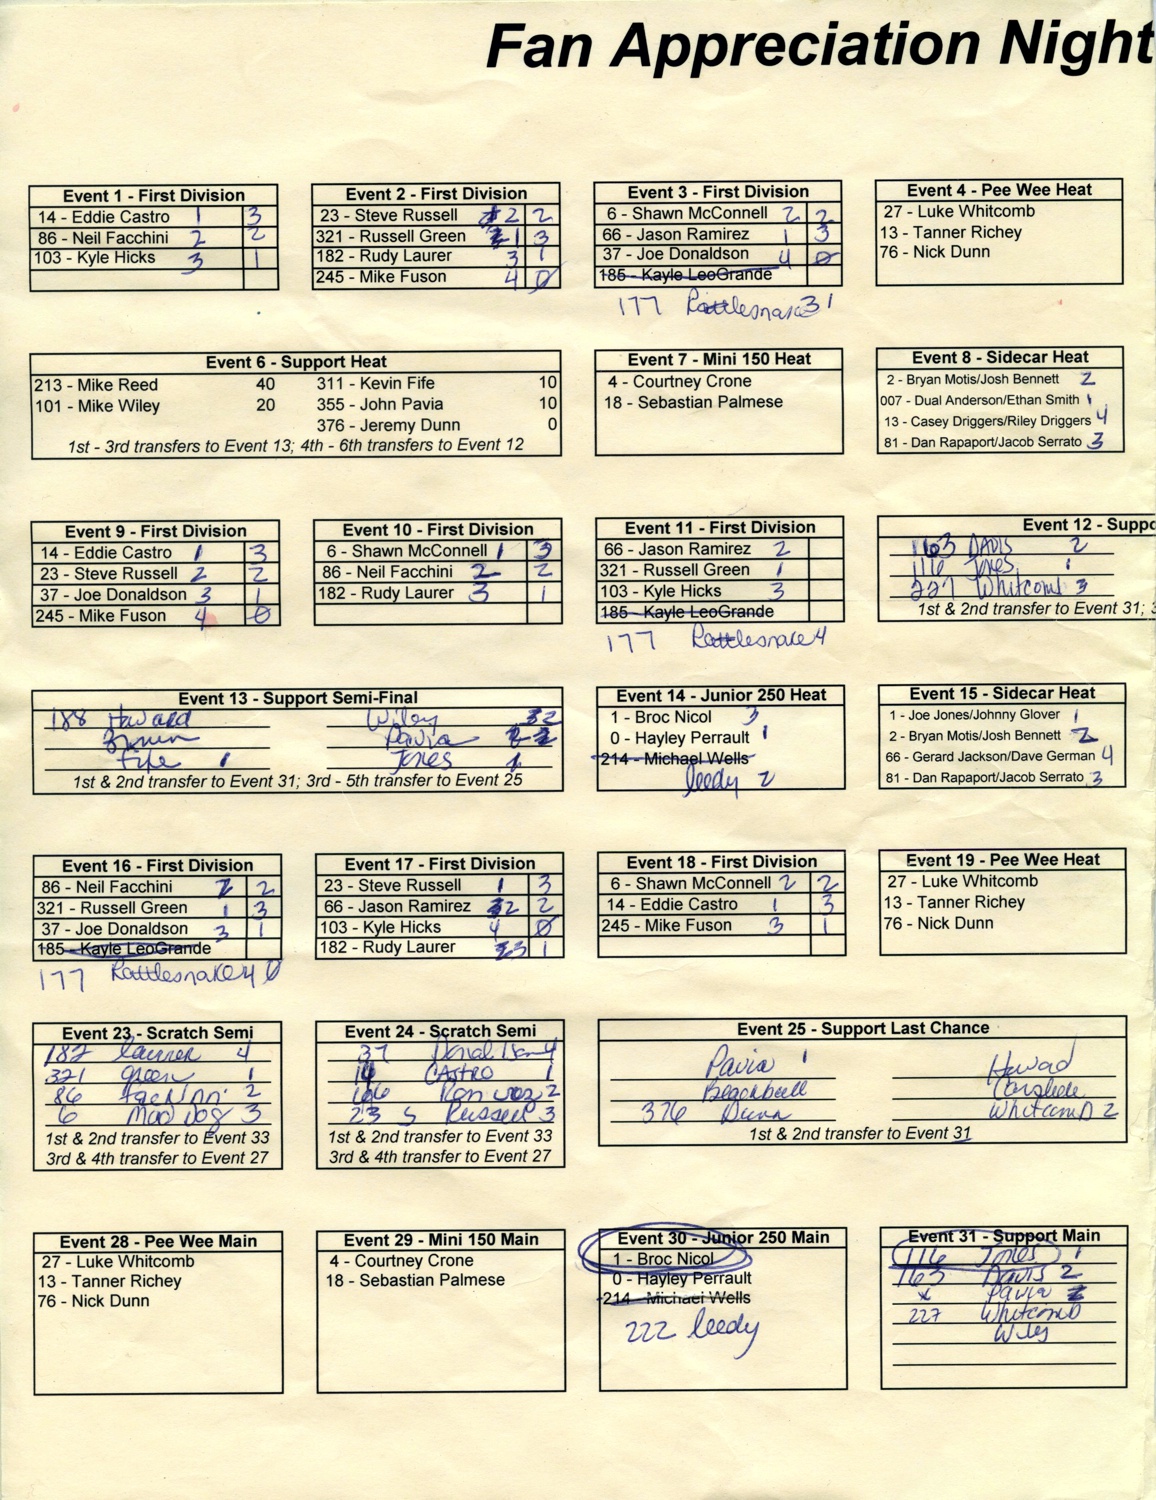 Fan Appreciation Night
Event 1 - First Division
14 - Eddie Castro 1 3
86 - Neil Facchini 2 2
103 - Kyle Hicks 3 1
Event 2 - First Division
23 - Steve Russell 2 2
321 - Russell Green 1 3
182 - Rudy Laurer 3 1
245 - Mike Fuson 4 0
Event 3 - First Division
6 - Shawn McConnell 2 2
66 - Jason Ramirez 1 3
37 - Joe Donaldson 4 0
185 - Kayle LeoGrande
177 Rattlesnake 3 1
Event 4 - Pee Wee Heat
27 - Luke Whitcomb
13 - Tanner Richey
76 - Nick Dunn
Event 6 - Support Heat
213 - Mike Reed 40 311 - Kevin Fife 10
101 - Mike Wiley 20 355 - John Pavia 10
376 - Jeremy Dunn 0
1st - 3rd transfers to Event 13; 4th - 6th transfers to Event 12
Event 7 - Mini 150 Heat
4 - Courtney Crone
18 - Sebastian Palmese
Event 8 - Sidecar Heat
2 - Bryan Motis/Josh Bennett 2
007 - Dual Anderson/Ethan Smith 1
13 - Casey Driggers/Riley Driggers 4
81 - Dan Rapaport/Jacob Serrato 3
Event 9 - First Division
14 - Eddie Castro 1 3
23 - Steve Russell 2 2
37 - Joe Donaldson 3 1
245 - Mike Fuson 4 0
Event 10 - First Division
6 - Shawn McConnell 1 3
86 - Neil Facchini 2 2
182 - Rudy Laurer 3 1
Event 11 - First Division
66 - Jason Ramirez 2
321 - Russell Green 1
103 - Kyle Hicks 3
185 - Kayle LeoGrande
177 Rattlesnake 4
Event 12 - Suppo
163 DAVIS 2
116 Jones 1
227 Whitcomb 3
1st & 2nd transfer to Event 31; 3
Event 13 - Support Semi-Final
188 Howard Wiley
Brown Pavia
Fife 1 Jones
1st & 2nd transfer to Event 31; 3rd - 5th transfer to Event 25
Event 14 - Junior 250 Heat
1 - Broc Nicol 3
0 - Hayley Perrault 1
214 - Michael Wells
leedy 2
Event 15 - Sidecar Heat
1 - Joe Jones/Johnny Glover 1
2 - Bryan Motis/Josh Bennett 2
66 - Gerard Jackson/Dave German 4
81 - Dan Rapaport/Jacob Serrato 3
Event 16 - First Division
86 - Neil Facchini 2 2
321 - Russell Green 1 3
37 - Joe Donaldson 3 1
185 - Kayle LeoGrande
177 Rattlesnake 4 0
Event 17 - First Division
23 - Steve Russell 1 3
66 - Jason Ramirez 2 2
103 - Kyle Hicks 4 0
182 - Rudy Laurer 3 1
Event 18 - First Division
6 - Shawn McConnell 2 2
14 - Eddie Castro 1 3
245 - Mike Fuson 3 1
Event 19 - Pee Wee Heat
27 - Luke Whitcomb
13 - Tanner Richey
76 - Nick Dunn
Event 23 - Scratch Semi
182 Laurer 4
321 Green 1
86 2
6 Mad Dog 3
1st & 2nd transfer to Event 33
3rd & 4th transfer to Event 27
Event 24 - Scratch Semi
37 4
14 CASTRO 1
66 2
23 S Russell 3
1st & 2nd transfer to Event 33
3rd & 4th transfer to Event 27
Event 25 - Support Last Chance
Pavia 1 Howard
376 Dunn Whitcomb 2
1st & 2nd transfer to Event 31
Event 28 - Pee Wee Main
27 - Luke Whitcomb
13 - Tanner Richey
76 - Nick Dunn
Event 29 - Mini 150 Main
4 - Courtney Crone
18 - Sebastian Palmese
Event 30 - Junior 250 Main
1 - Broc Nicol
0 - Hayley Perrault
214 - Michael Wells
222 leedy
Event 31 - Support Main
116 Jones 1
163 Davis 2
x Pavia
227 Whitcomb
Wiley